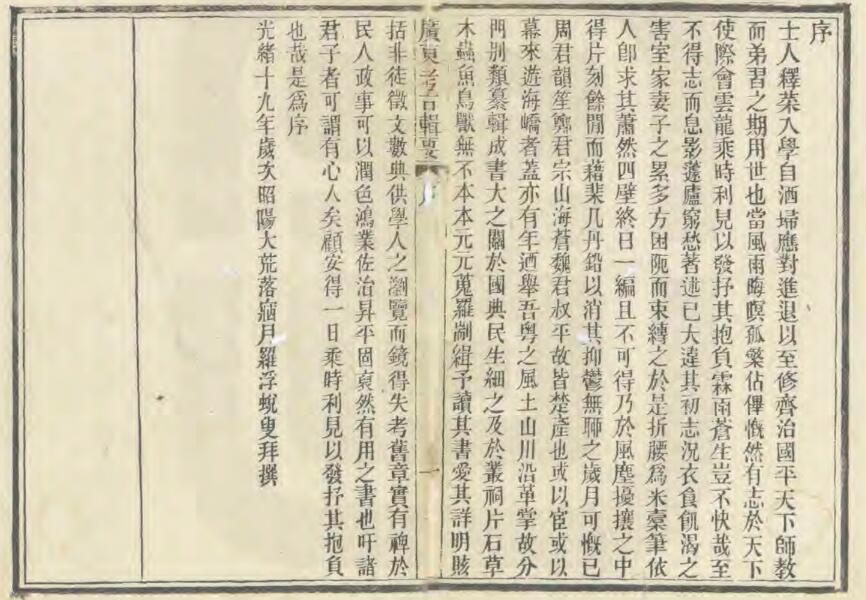 序
士人釋菜入學自洒埽應對進退以至修齊治國平天下師教
而弟習之期用世也當風雨晦暝孤檠佔俾慨然有志於天下
使際會雲龍乘時利見以發抒其抱負霖雨蒼生豈不快哉至
不得志而息影蘧廬窮愁著述已大違其初志況衣食飢渴之
害室家妻子之累多方困阨而束縳之於是折腰爲米橐筆依
人卽求其蕭然四壁終日一編且不可得乃於風塵擾攘之中
得片刻餘閒而藉棐几丹鉛以消其抑鬱無聊之歲月可慨已
周君韻笙鄭君宗山海蒼魏君叔平故皆楚產也或以宦或以
幕來遊海嶠者蓋亦有年迺舉吾粵之風土山川沿革掌故分
門別類纂輯成書大之關於國典民生細之及於叢祠片石草
木蟲魚鳥獸無不本本元元蒐羅剬緝予讀其書愛其詳明賅
廣東考古輯要 序 一
括非徒徵文數典供學人之瀏覽而鏡得失考舊章實有裨於
民人政事可以潤色鴻業佐治昇平固裒然有用之書也吁諸
君子者可謂有心人矣顧安得一日乘時利見以發抒其抱負
也哉是爲序
光緒十九年歲次昭陽大荒落寎月羅浮蛻叟拜撰